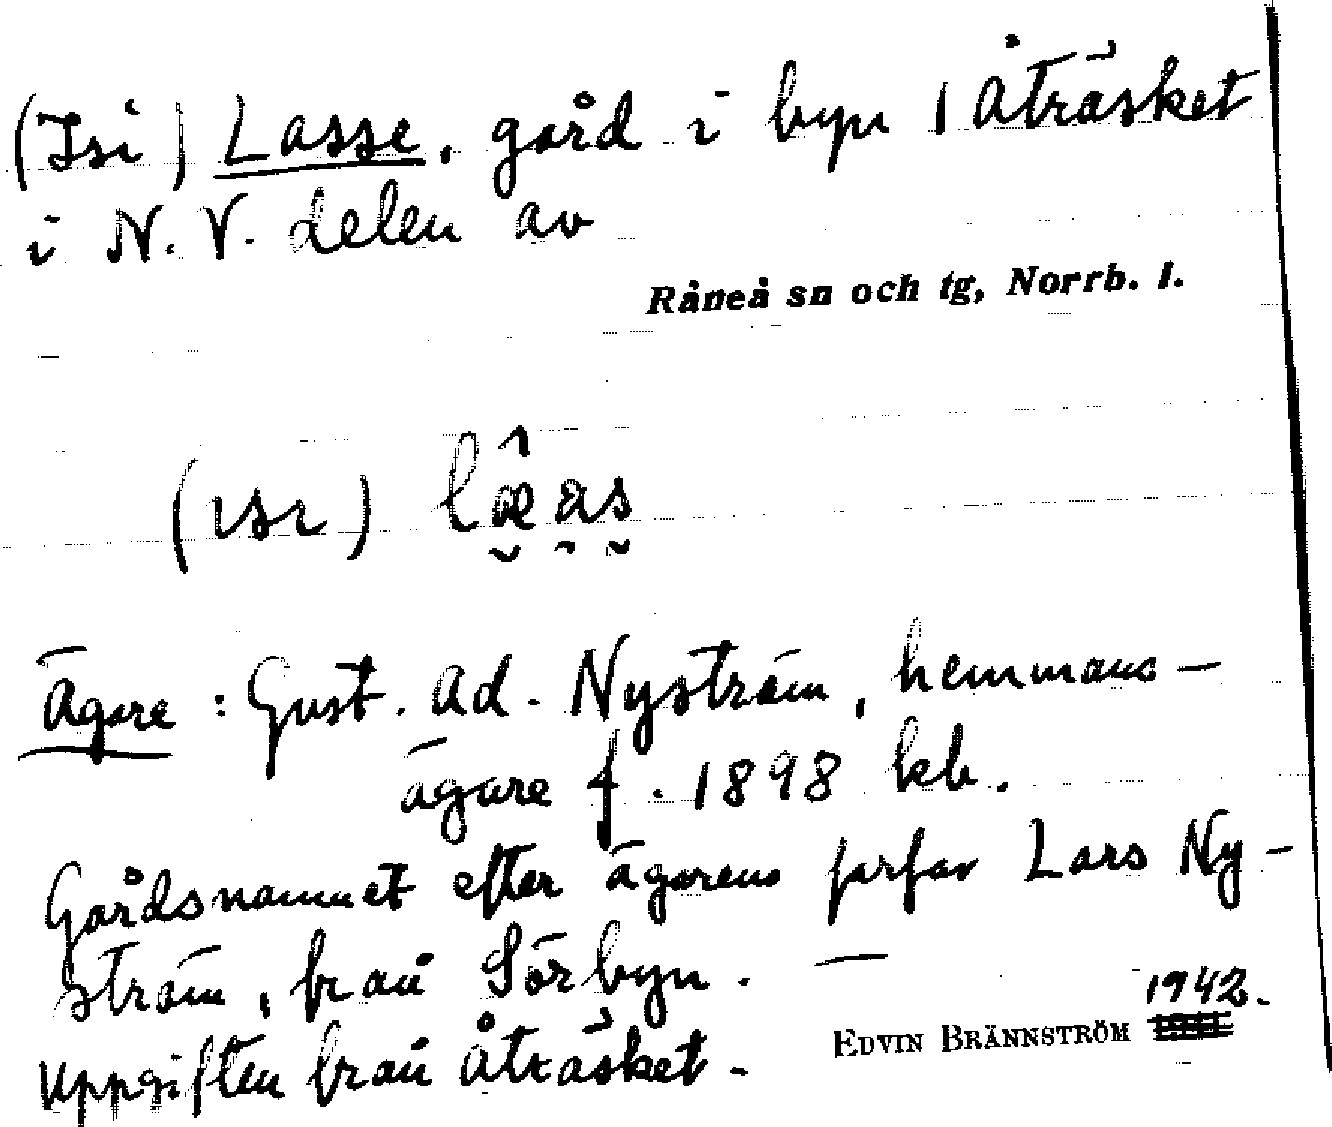 (Isi) Lasse, gård i byn 1 Åträsket
i N.V. delen av
Råneå sn och tg, Norrb. l.
(ısı)
Ägare: Gust. Ad. Nyström, hemmans-
ägare f. 1898 kb.
Gårdsnamnet efter ägarens farfar Lars Ny-
ström, från Sörbyn. —
1942.
Uppgiften från Åträsket. -
EDVIN BRÄNNSTRÖM 1941